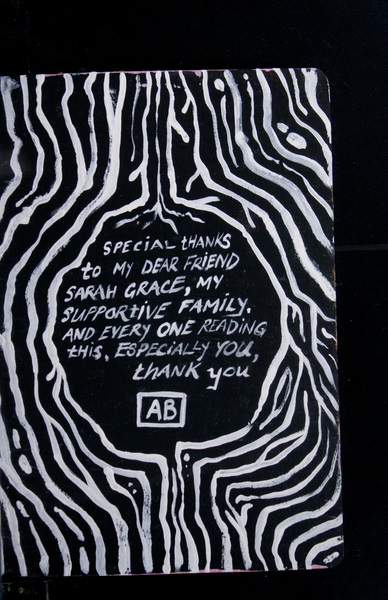 SPECIAL thANKS
to MY DEAR FRIEND
SARAH GRACE, MY
SUPPORTIVE FAMILY.
AND EVERY ONE READING
thIS, ESPECIALLY YOU,
thANK you
AB